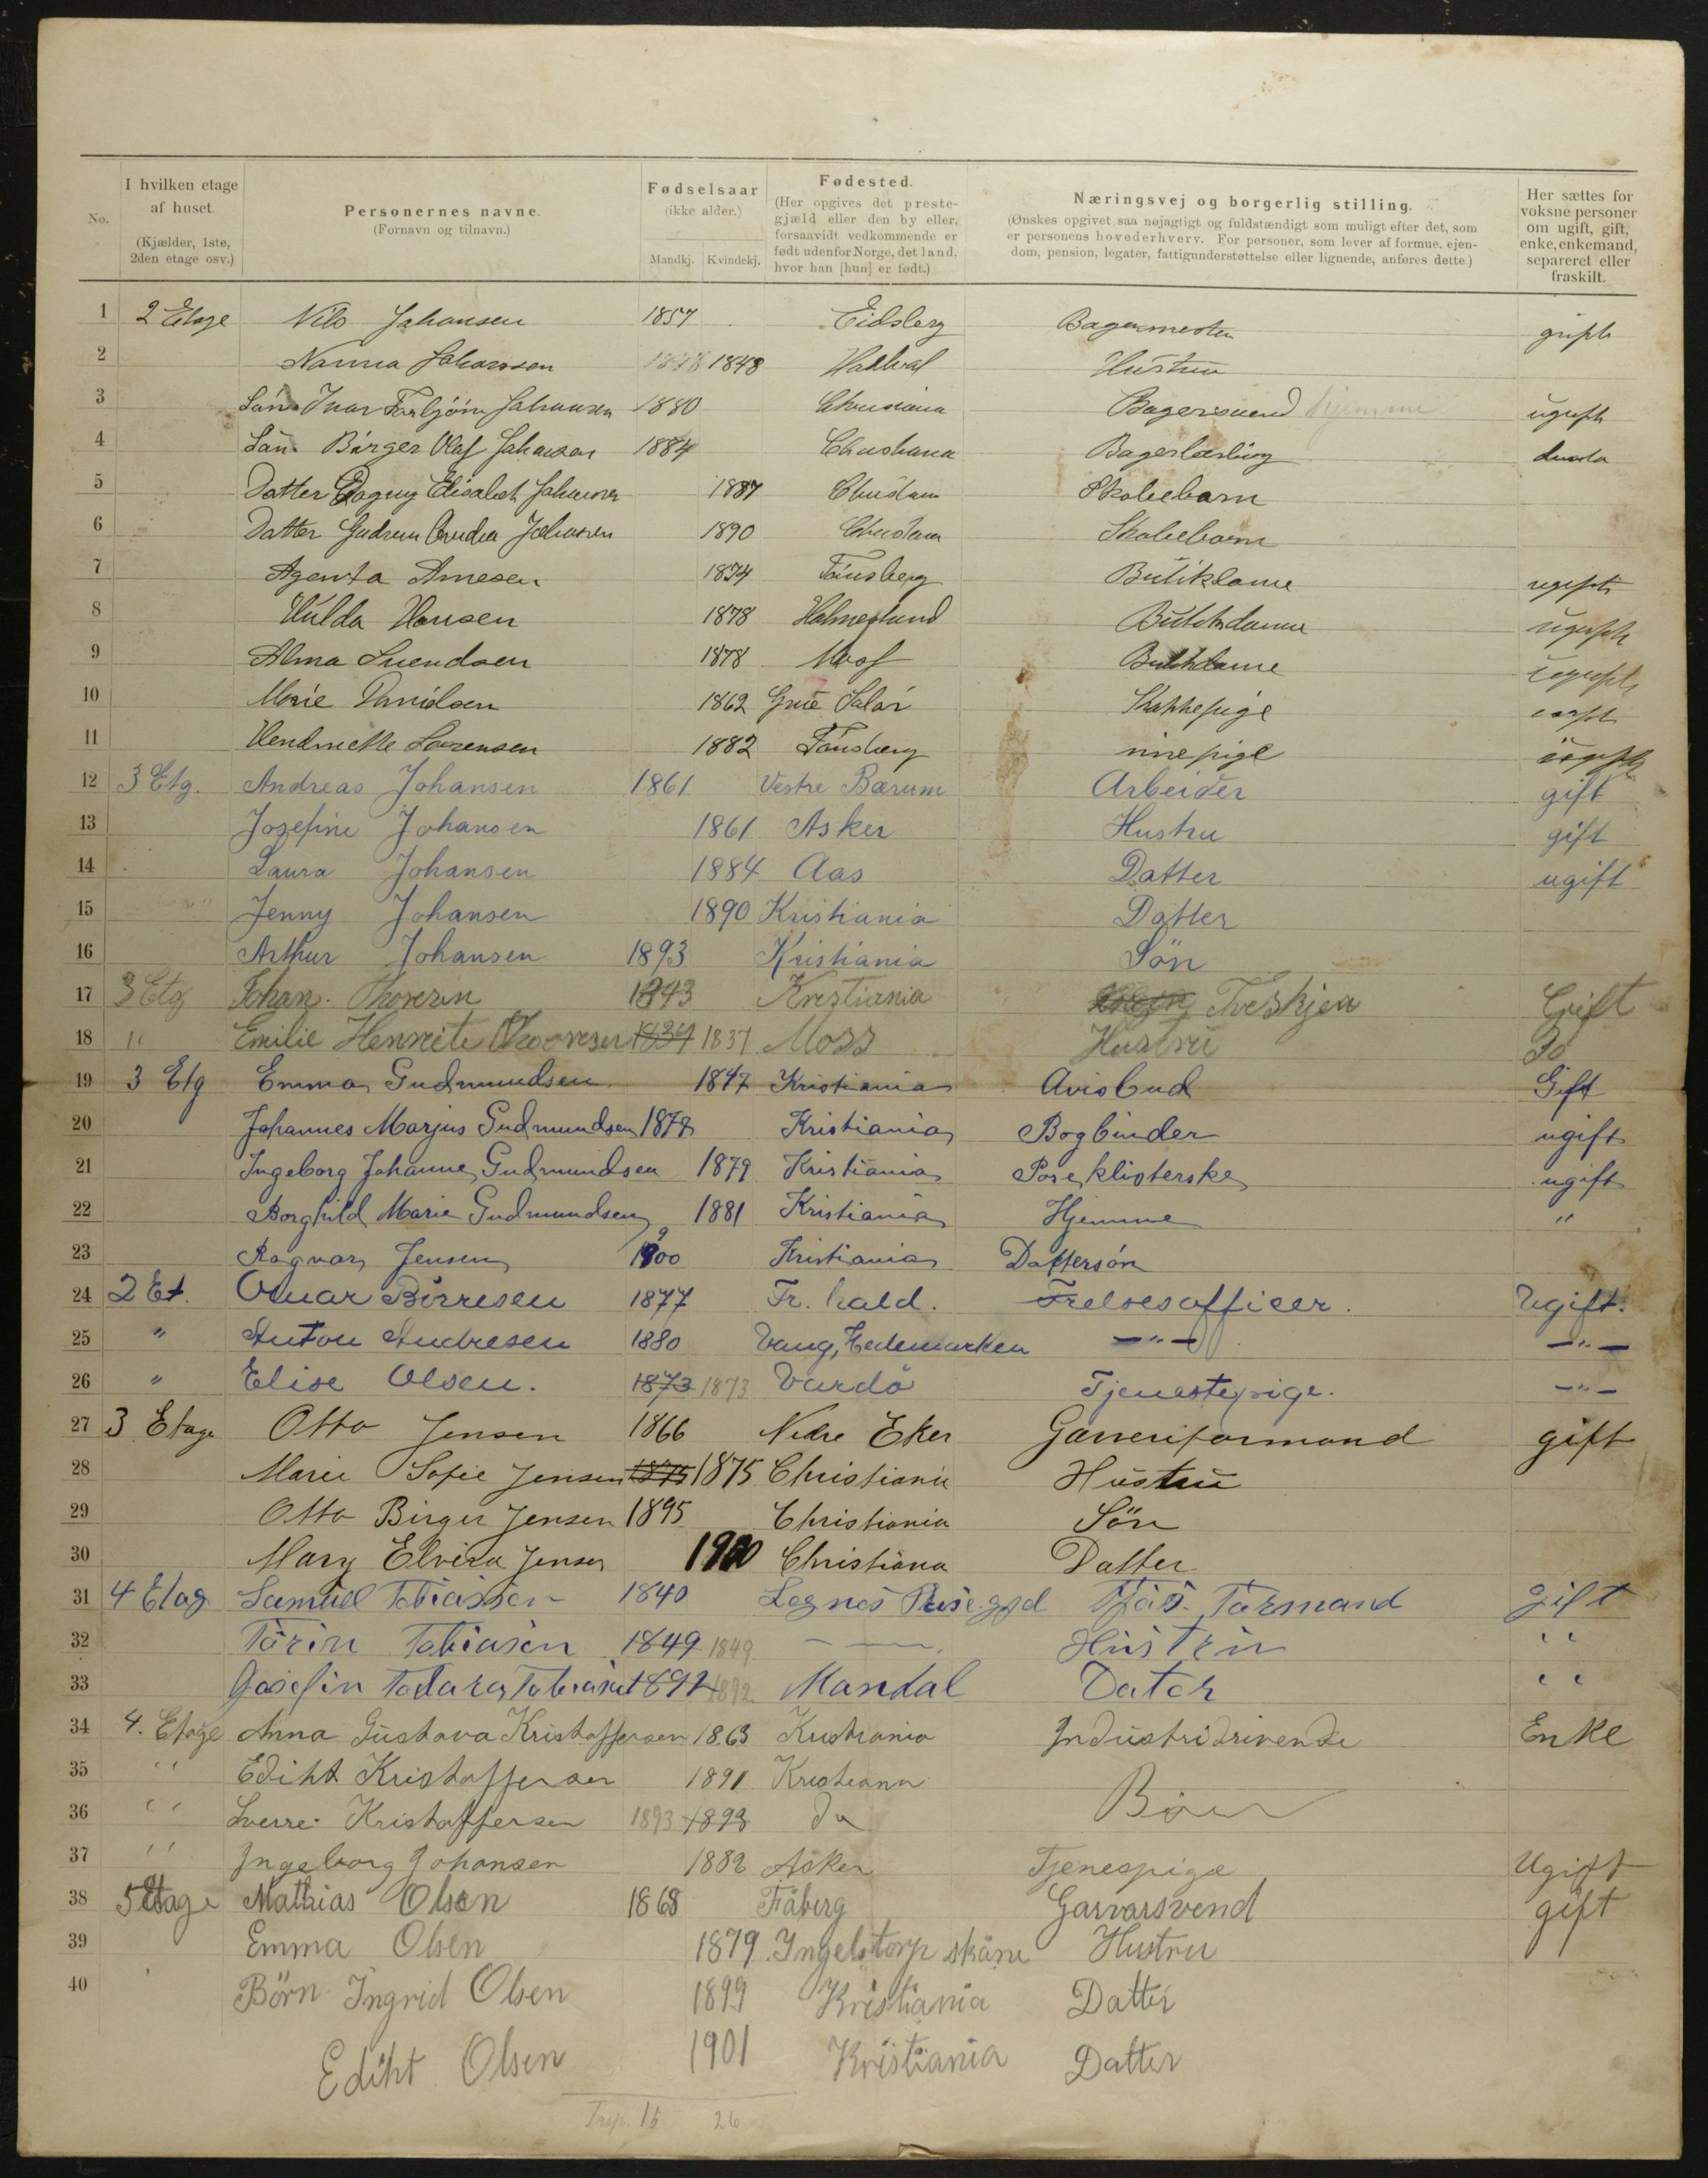 No.
I hvilken etage af huset. (Kjælder, 1ste, 2den etage osv.)
Personernes navne. (Fornavn og tilnavn.)
Fødselsaar (ikke alder.) Mandkj. Kvindekj.
Fødested. (Her opgives det prestegjæld eller den by eller, forsaavidt vedkommende er født udenfor Norge, det land, hvor han [hun] er født.)
Næringsvej og borgerlig stilling. (Ønskes opgivet saa nøjagtigt og fuldstændigt som muligt efter det, som er personens hovederhverv. For personer, som lever af formue, ejendom, pension, legater, fattigunderstøttelse eller lignende, anføres dette.)
Her sættes for voksne personer om ugift, gift, enke, enkemand, separeret eller fraskilt.
1 2 Etage Nils Johansen 1857 Eidsberg Bagermester gift
2 Nanna Johanssen 1848 1848 Hustru
3 Sön Ivar Torbjörn Johansen 1880 Christiania Bagersvend hjemme ugift
4 Sön Birger Olaf Johansen 1884 Christiania Bagerlærling
5 Datter Dagny Elisabet Johansen 1887 Christiania Skolebarn
6 Datter Gudrun Johansen 1890 Christiania Skolebarn
7 Agenta Arnesen 1874 Tönsberg Butikdame ugift
8 Hulda Hansen 1878 Holmestrand Butikdame ugift
9 Alma Svendsen 1878 Moss Butikdame ugift
10 Marie Danielsen 1862 Grue Solör ugift
11 Hendriette Lorensen 1882 Tönsberg pige ugift
12 3 Etg. Andreas Johansen 1861 Vestre Bærum Arbeider gift
13 Josefine Johansen 1861 Asker Hustru gift
14 Laura Johansen 1884 Aas Datter ugift
15 Jenny Johansen 1890 Kristiania Datter
16 Arthur Johansen 1893 Kristiania Sön
17 3 Etg Johan Thoresen 1843 Krestiania Gift
18 " Emilie Henriete Thooresen 1837 1837 Moss Hustru Do
19 3 Etg Emma Gudmundsen 1847 Kristiania Avisbud Gift
20 Johannes Marjus Gudmundsen 1878 Kristiania Bogbinder ugift
21 Ingeborg Johanne Gudmundsen 1879 Kristiania Poseklisterske ugift
22 Borghild Marie Gudmundsen 1881 Kristiania Hjemme "
23 Ragnar Jensen 1900 Kristiania Dattersön
24 2 Et. Börresen 1877 Fr. hald. Frelsesofficer. Ugift.
25 " Anton Andresen 1880 Vang, Hedemarken -"- -"-
26 " Elise Olsen. 1873 1873 Vardö Tjenestepige. -"-
27 3 Etage Otto Jensen 1866 Nedre Eker Garveriformand gift
28 Marie Sofie Jensen 1875 1875 Christiania Hustru
29 Otto Birger Jensen 1895 Christiania Sön
30 Mary Elvira Jensen 1900 Christiana Datter
31 4 Etag Samuel Tobiassen 1840 gift
32 Torin Tobiasen 1849 1849 — — Hustru "
33 Tobiasen 1892 1892 Mandal Dater "
34 4. Etage Anna Gustava Kristoffersen 1863 Kristiania Industridrivende Enke
35 " Ediht Kristoffersen 1891 Kristiania
36 " Sverre Kristoffersen 1893 1893 Do Börn
37 " Ingeborg Johansen 1882 Asker Tjenespige Ugift
38 5 Etage Mathias Olsen 1868 Fåberg Garvarsvend gift
39 Emma Olsen 1879 Ingelstorp skåne Hustru
40 Börn Ingrid Olsen 1899 Kristiania Datter
Ediht Olsen 1901 Kristiania Datter
15 26